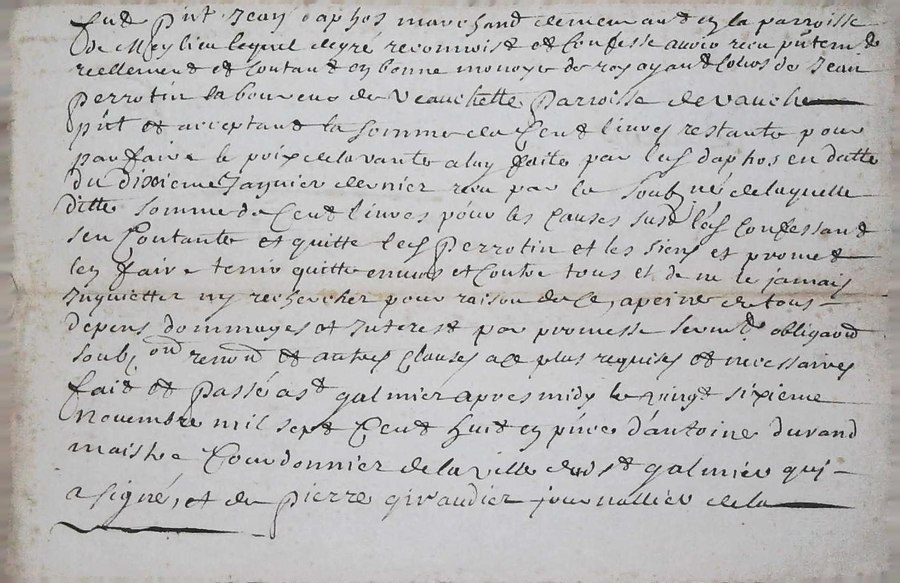 fut pnt Jean daphos marchand demeurant en la parroisse
de Meylieu lequel de gré reconnoist et confesse avoir receu pntemt
reellement et contant en bonne monoye de roy ayant cours de Jean
Perrotin laboureur de Veauchette Parroisse de vauche
pnt et acceptant la somme de Cent livres restante pour
parfaire le prix de la vante a luy faite par led daphos en datte
du dixieme Janvier dernier receu par le soubné de laquelle
ditte somme de Cent livres pour les causes susd led confessant
sen Contante et quitte led Perrotin et les siens et promet
len faire tenir quitte envers et Contre tous et de ne le jamais
Inquietter ny rechercher pour raison de Ce, a peine de tous
depens dommages et Interest par promesse sermt obligaond
soub, on renond et autres clauses a ce plus requises et necessaires
fait et passé a st galmier apres midy le vingt sixieme
Novembre mil sept Cent huit en pnce d'antoine durand
maistre Courdonnier de la ville dud st galmier qui
a signé, et de pierre giraudier journallier de la